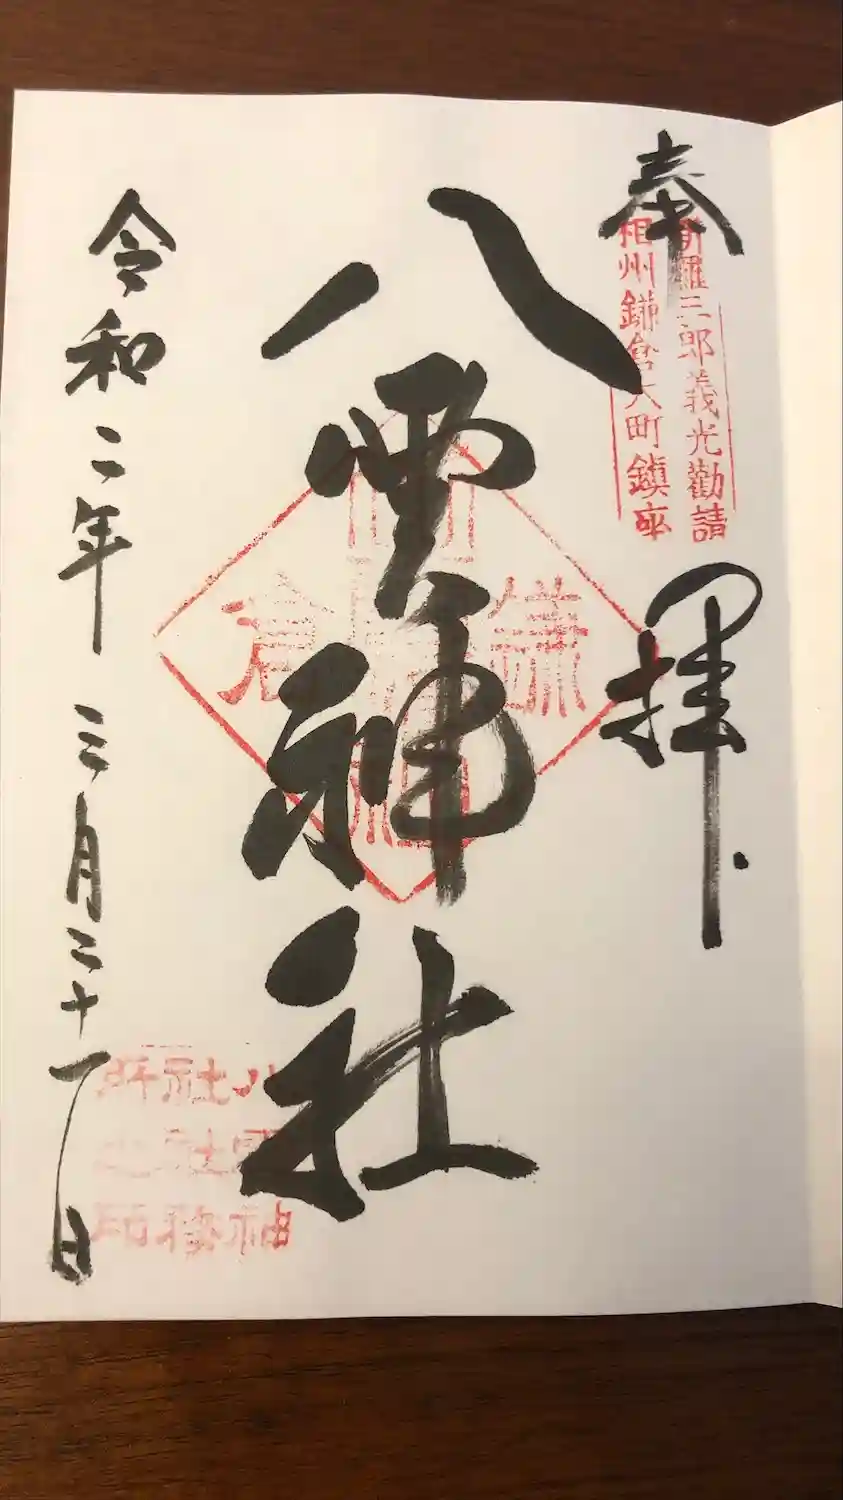 奉拝
新羅三郎義光勸請
相州鎌倉大町鎮座
八雲神社
鎌倉
令和二年三月二十一日
八雲神
社社務
所之印